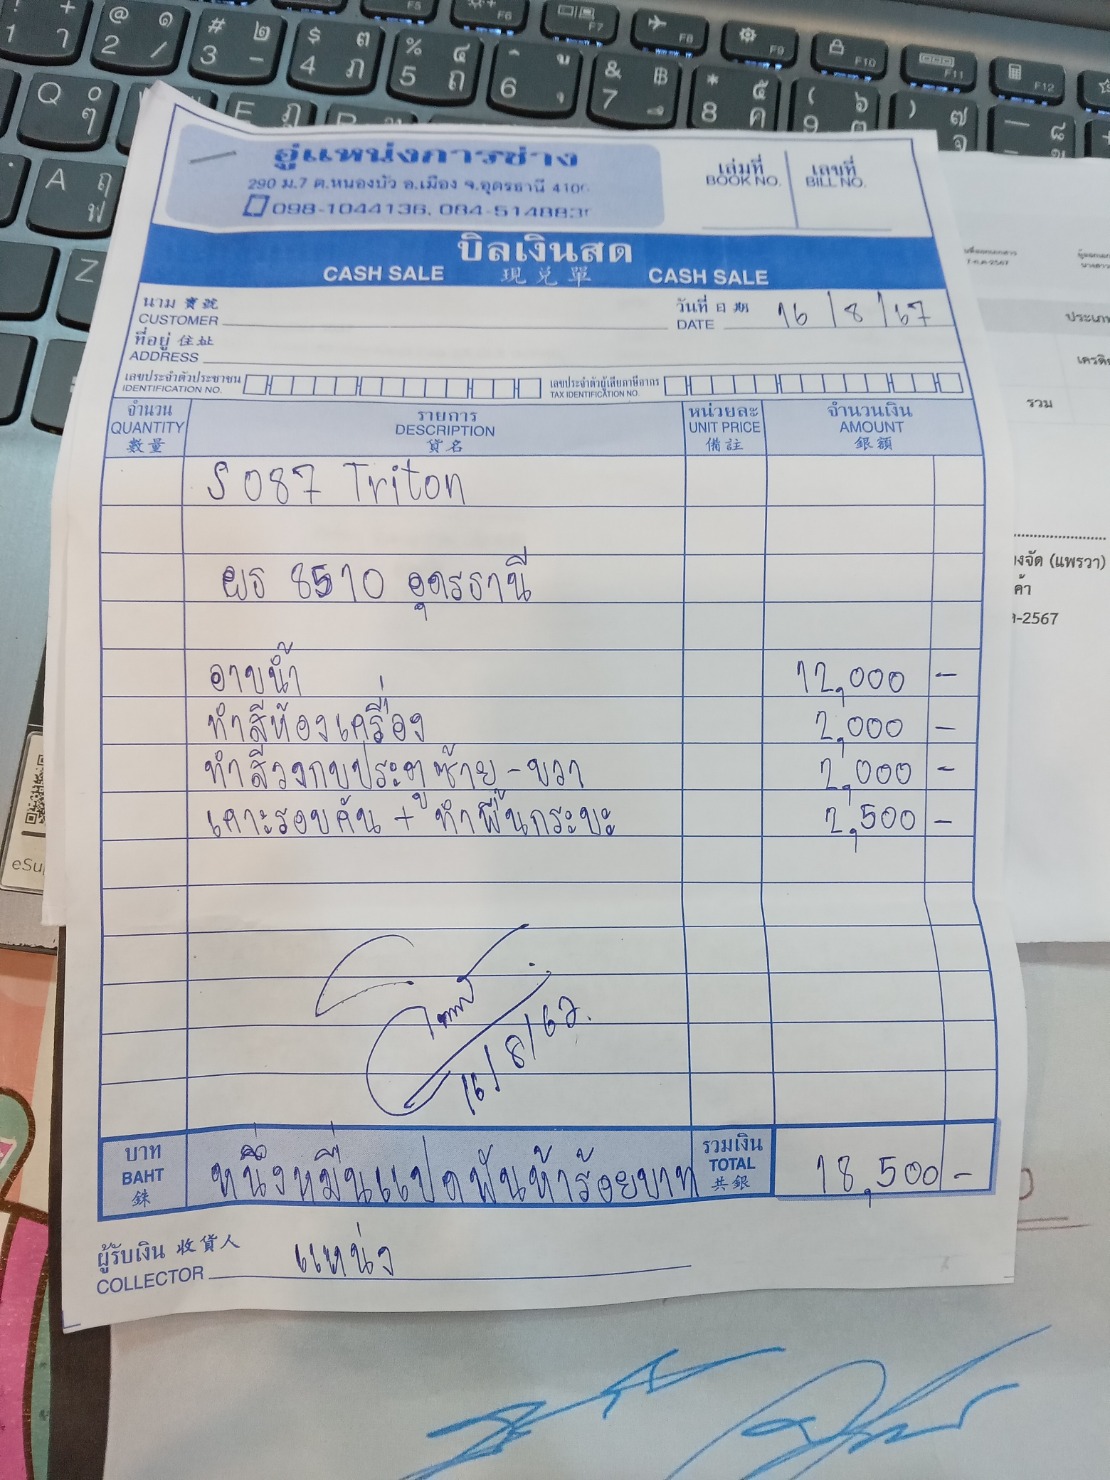 อู่แหน่งการช่าง
290 ม.7 ต.หนองบัว อ.เมือง จ.อุดรธานี 4100
098-1044136, 084-514883
เล่มที่
BOOK NO.
เลขที่
BILL NO.
บิลเงินสด
CASH SALE 現兌單 CASH SALE
นาม 寶號
CUSTOMER
วันที่ 日期
DATE 16/8/67
ที่อยู่ 住址
ADDRESS
เลขประจำตัวประชาชน
IDENTIFICATION NO.
เลขประจำตัวผู้เสียภาษีอากร
TAX IDENTIFICATION NO.
จำนวน รายการ หน่วยละ จำนวนเงิน
QUANTITY DESCRIPTION UNIT PRICE AMOUNT
數量 貨名 備註 銀額
S 087 Triton
ผธ 8510 อุดรธานี
อาบน้ำ 12,000 -
ทำสีห้องเครื่อง 2,000 -
ทำสีวงกบประตูซ้าย - ขวา 2,000 -
เคาะรอบคัน + ทำพื้นกระบะ 2,500 -
16/8/67.
บาท
BAHT
銖
หนึ่งหมื่นแปดพันห้าร้อยบาท
รวมเงิน
TOTAL
共銀
18,500 -
ผู้รับเงิน 收貨人
COLLECTOR แหน่ง
7-ก.ค.-2567
ประเภท
เครดิต
รวม
งจัด (แพรวา)
ค้า
-2567
eSu